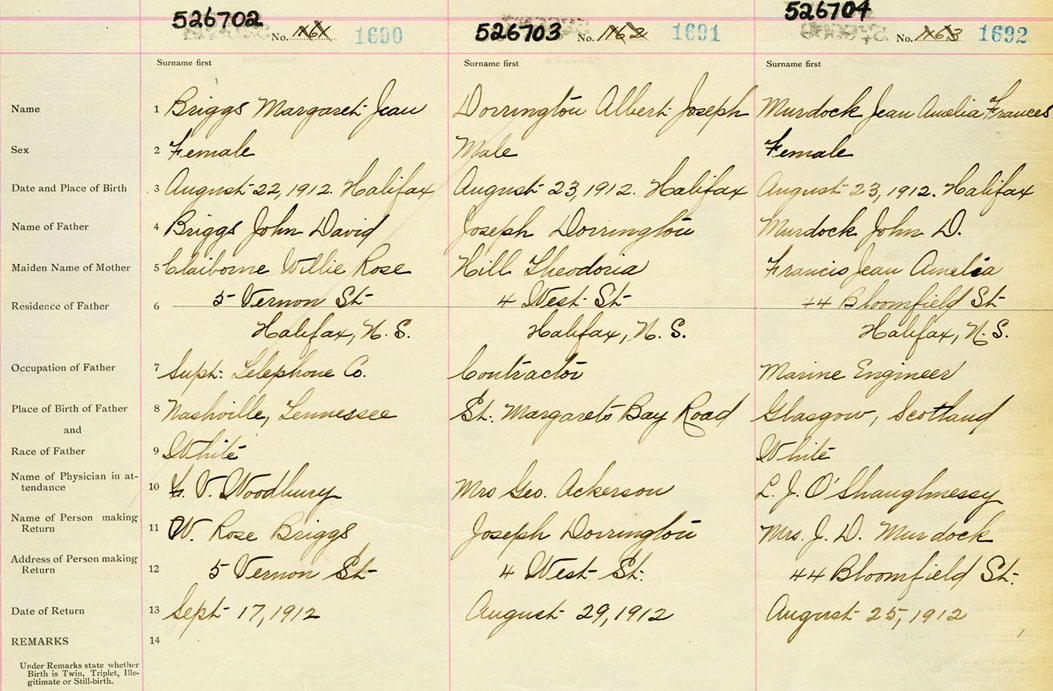 526702 526703 526704
No. 1161 1690 No. 1162 1691 No. 1163 1692
Surname first Surname first Surname first
Name 1 Briggs Margaret Jean Dorrington Albert Joseph Murdock Jean Amelia Frances
Sex 2 Female Male Female
Date and Place of Birth 3 August 22, 1912. Halifax August 23, 1912. Halifax August 23, 1912. Halifax
Name of Father 4 Briggs John David Joseph Dorrington Murdock John D.
Maiden Name of Mother 5 Claiborne Willie Rose Hill Theodoria Francis Jean Amelia
Residence of Father 6 5 Vernon St 4 West St 44 Bloomfield St
Halifax, N. S. Halifax, N. S. Halifax, N. S.
Occupation of Father 7 Supt. Telephone Co. Contractor Marine Engineer
Place of Birth of Father 8 Nashville, Tennessee St. Margarets Bay Road Glasgow, Scotland
and
Race of Father 9 White White
Name of Physician in at-
tendance 10 V. Woodbury Mrs Geo. Ackerson L. J. O'Shaughnessy
Name of Person making
Return 11 W. Rose Briggs Joseph Dorrington Mrs. J. D. Murdock
Address of Person making
Return 12 5 Vernon St 4 West St. 44 Bloomfield St.
Date of Return 13 Sept 17, 1912 August 29, 1912 August 25, 1912
REMARKS 14
Under Remarks state whether
Birth is Twin, Triplet, Ille-
gitimate or Still-birth.